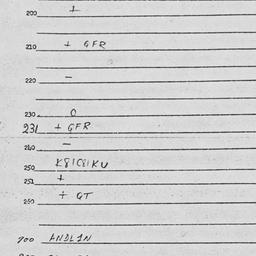 200 +
210 + GFR
220 -
230 0
231 + GFR
240 -
250 K81C81KU
251 +
260 + GT
700 ANDL1N